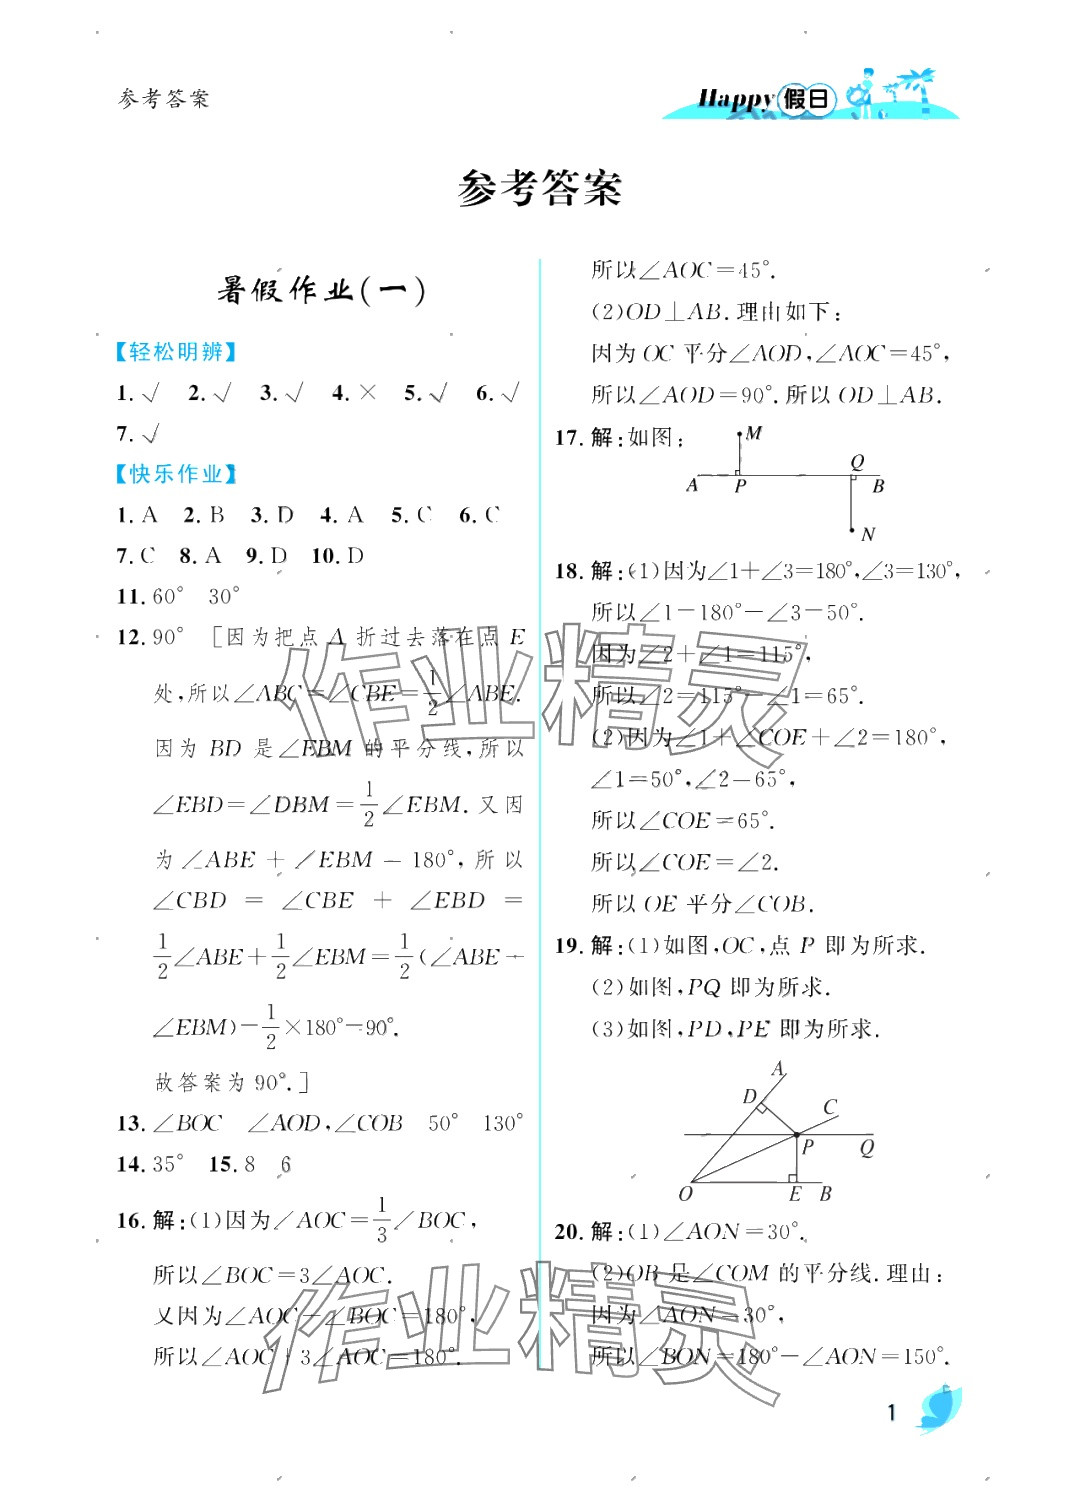 参考答案
Happy假日
参考答案
暑假作业(一)
【轻松明辨】
1.√ 2.√ 3.√ 4.× 5.√ 6.√
7.√
【快乐作业】
1.A 2.B 3.D 4.A 5.C 6.C
7.C 8.A 9.D 10.D
11.60° 30°
12.90° [因为把点 A 折过去落在点 E
处,所以∠ABC=∠CBE=1/2∠ABE.
因为 BD 是∠EBM 的平分线,所以
∠EBD=∠DBM=1/2∠EBM.又因
为∠ABE+∠EBM=180°,所以
∠CBD = ∠CBE + ∠EBD =
1/2∠ABE+1/2∠EBM=1/2(∠ABE+
∠EBM)=1/2×180°=90°.
故答案为 90°.]
13.∠BOC ∠AOD,∠COB 50° 130°
14.35° 15.8 6
16.解:(1)因为∠AOC=1/3∠BOC,
所以∠BOC=3∠AOC.
又因为∠AOC+∠BOC=180°,
所以∠AOC+3∠AOC=180°.
所以∠AOC=45°.
(2)OD⊥AB.理由如下:
因为 OC 平分∠AOD,∠AOC=45°,
所以∠AOD=90°.所以 OD⊥AB.
17.解:如图:
M
Q
A P B
N
18.解:(1)因为∠1+∠3=180°,∠3=130°,
所以∠1=180°-∠3=50°.
因为∠2+∠1=115°,
所以∠2=115°-∠1=65°.
(2)因为∠1+∠COE+∠2=180°,
∠1=50°,∠2=65°,
所以∠COE=65°.
所以∠COE=∠2.
所以 OE 平分∠COB.
19.解:(1)如图,OC,点 P 即为所求.
(2)如图,PQ 即为所求.
(3)如图,PD,PE 即为所求.
A
D
C
P Q
O E B
20.解:(1)∠AON=30°.
(2)OB 是∠COM 的平分线.理由:
因为∠AON=30°,
所以∠BON=180°-∠AON=150°.
作业精灵
作业精灵
1